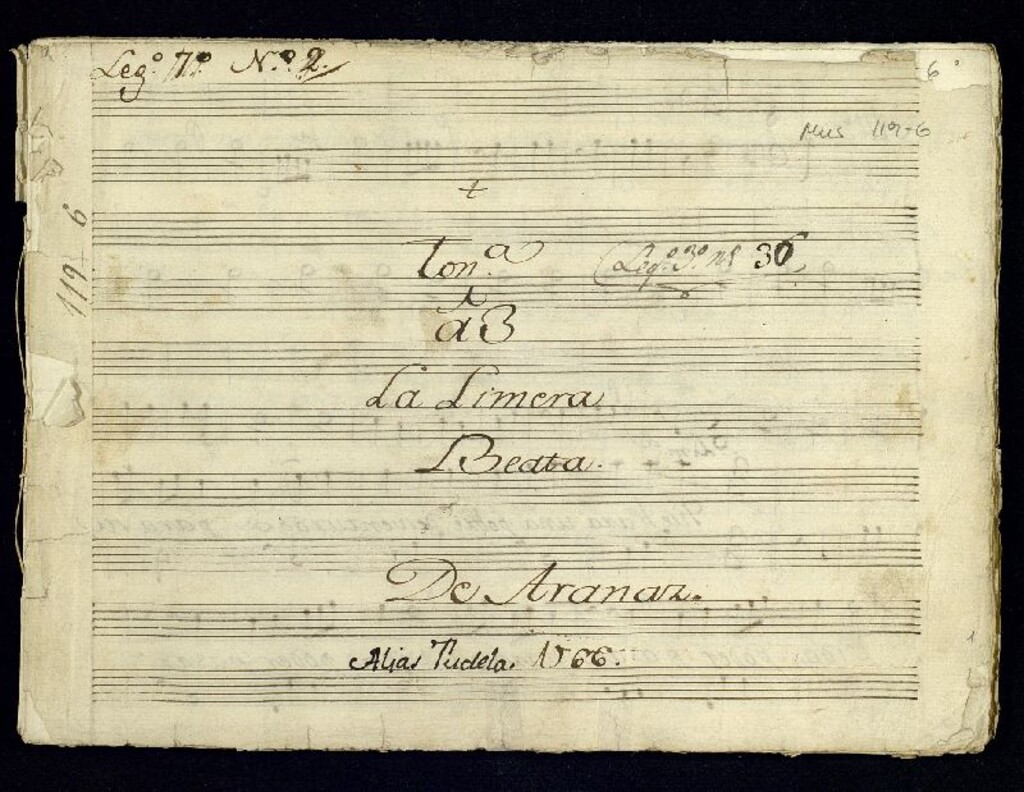 Leg.º 7.º N.º 2.
6º
Mus 119-6
119-6
Ton.ª (Leg.º 3.º nº 36)
à 3
La Limera
Beata.
De Aranaz.
Alias Tudela. 1766.
1